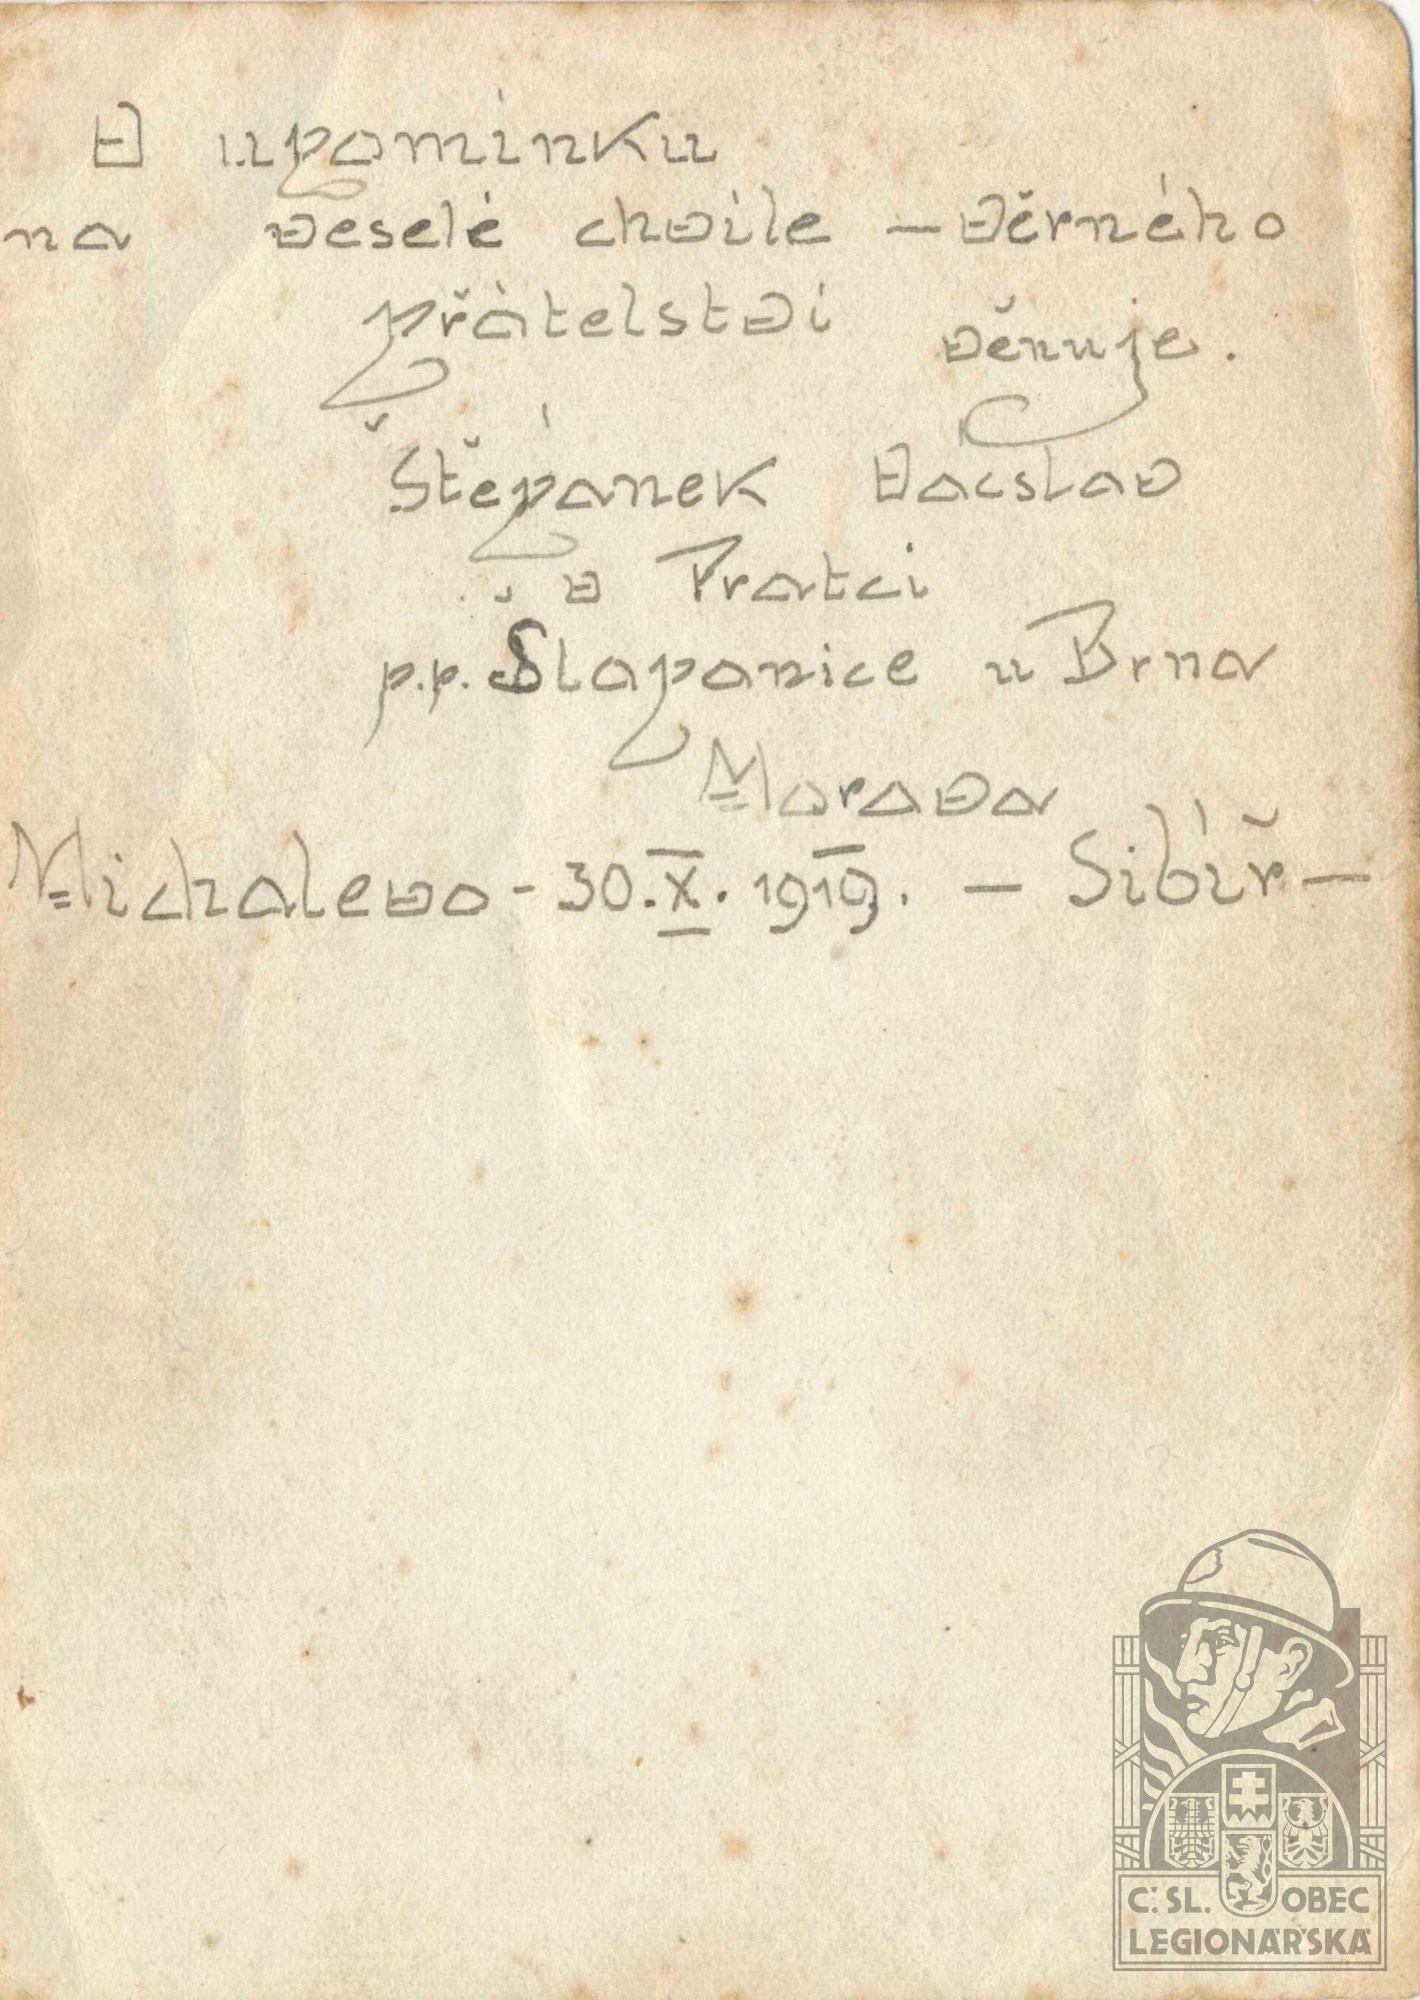 V upomínku
na veselé chvíle – věrného
přátelství věnuje.
Štěpánek Vacslav
v Pratci
p.p. Šlapanice u Brna
Morava
Michalevo - 30. X. 1919. – Sibíř –
Č. SL. OBEC
LEGIONÁŘSKÁ